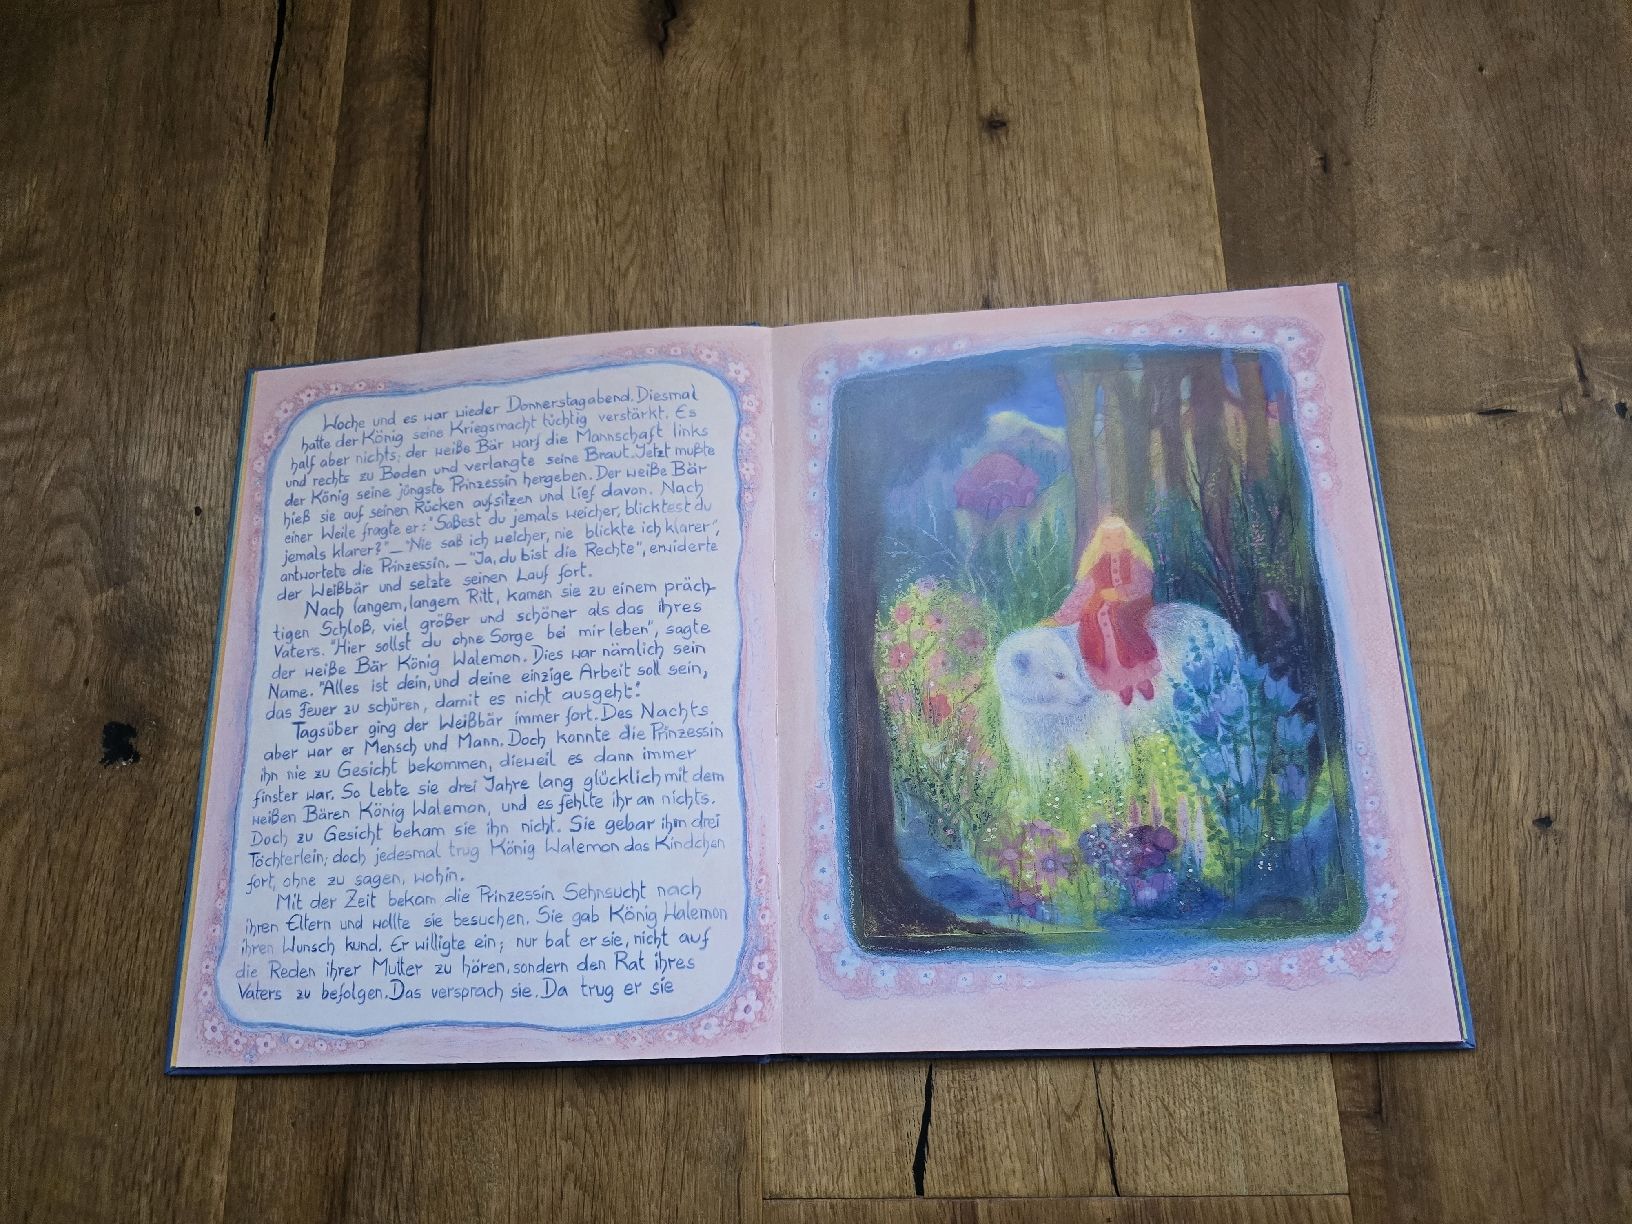 Woche und es war wieder Donnerstagabend. Diesmal
hatte der König seine Kriegsmacht tüchtig verstärkt. Es
half aber nichts; der weiße Bär warf die Mannschaft links
und rechts zu Boden und verlangte seine Braut. Jetzt mußte
der König seine jüngste Prinzessin hergeben. Der weiße Bär
hieß sie auf seinen Rücken aufsitzen und lief davon. Nach
einer Weile fragte er: "Saßest du jemals weicher, blicktest du
jemals klarer?" — "Nie saß ich weicher, nie blickte ich klarer",
antwortete die Prinzessin. — "Ja, du bist die Rechte", erwiderte
der Weißbär und setzte seinen Lauf fort.
Nach langem, langem Ritt, kamen sie zu einem präch-
tigen Schloß, viel größer und schöner als das ihres
Vaters. "Hier sollst du ohne Sorge bei mir leben", sagte
der weiße Bär König Walemon. Dies war nämlich sein
Name. "Alles ist dein, und deine einzige Arbeit soll sein,
das Feuer zu schüren, damit es nicht ausgeht!"
Tagsüber ging der Weißbär immer fort. Des Nachts
aber war er Mensch und Mann. Doch konnte die Prinzessin
ihn nie zu Gesicht bekommen, dieweil es dann immer
finster war. So lebte sie drei Jahre lang glücklich mit dem
weißen Bären König Walemon, und es fehlte ihr an nichts.
Doch zu Gesicht bekam sie ihn nicht. Sie gebar ihm drei
Töchterlein; doch jedesmal trug König Walemon das Kindchen
fort, ohne zu sagen, wohin.
Mit der Zeit bekam die Prinzessin Sehnsucht nach
ihren Eltern und wollte sie besuchen. Sie gab König Walemon
ihren Wunsch kund. Er willigte ein; nur bat er sie, nicht auf
die Reden ihrer Mutter zu hören, sondern den Rat ihres
Vaters zu befolgen. Das versprach sie. Da trug er sie